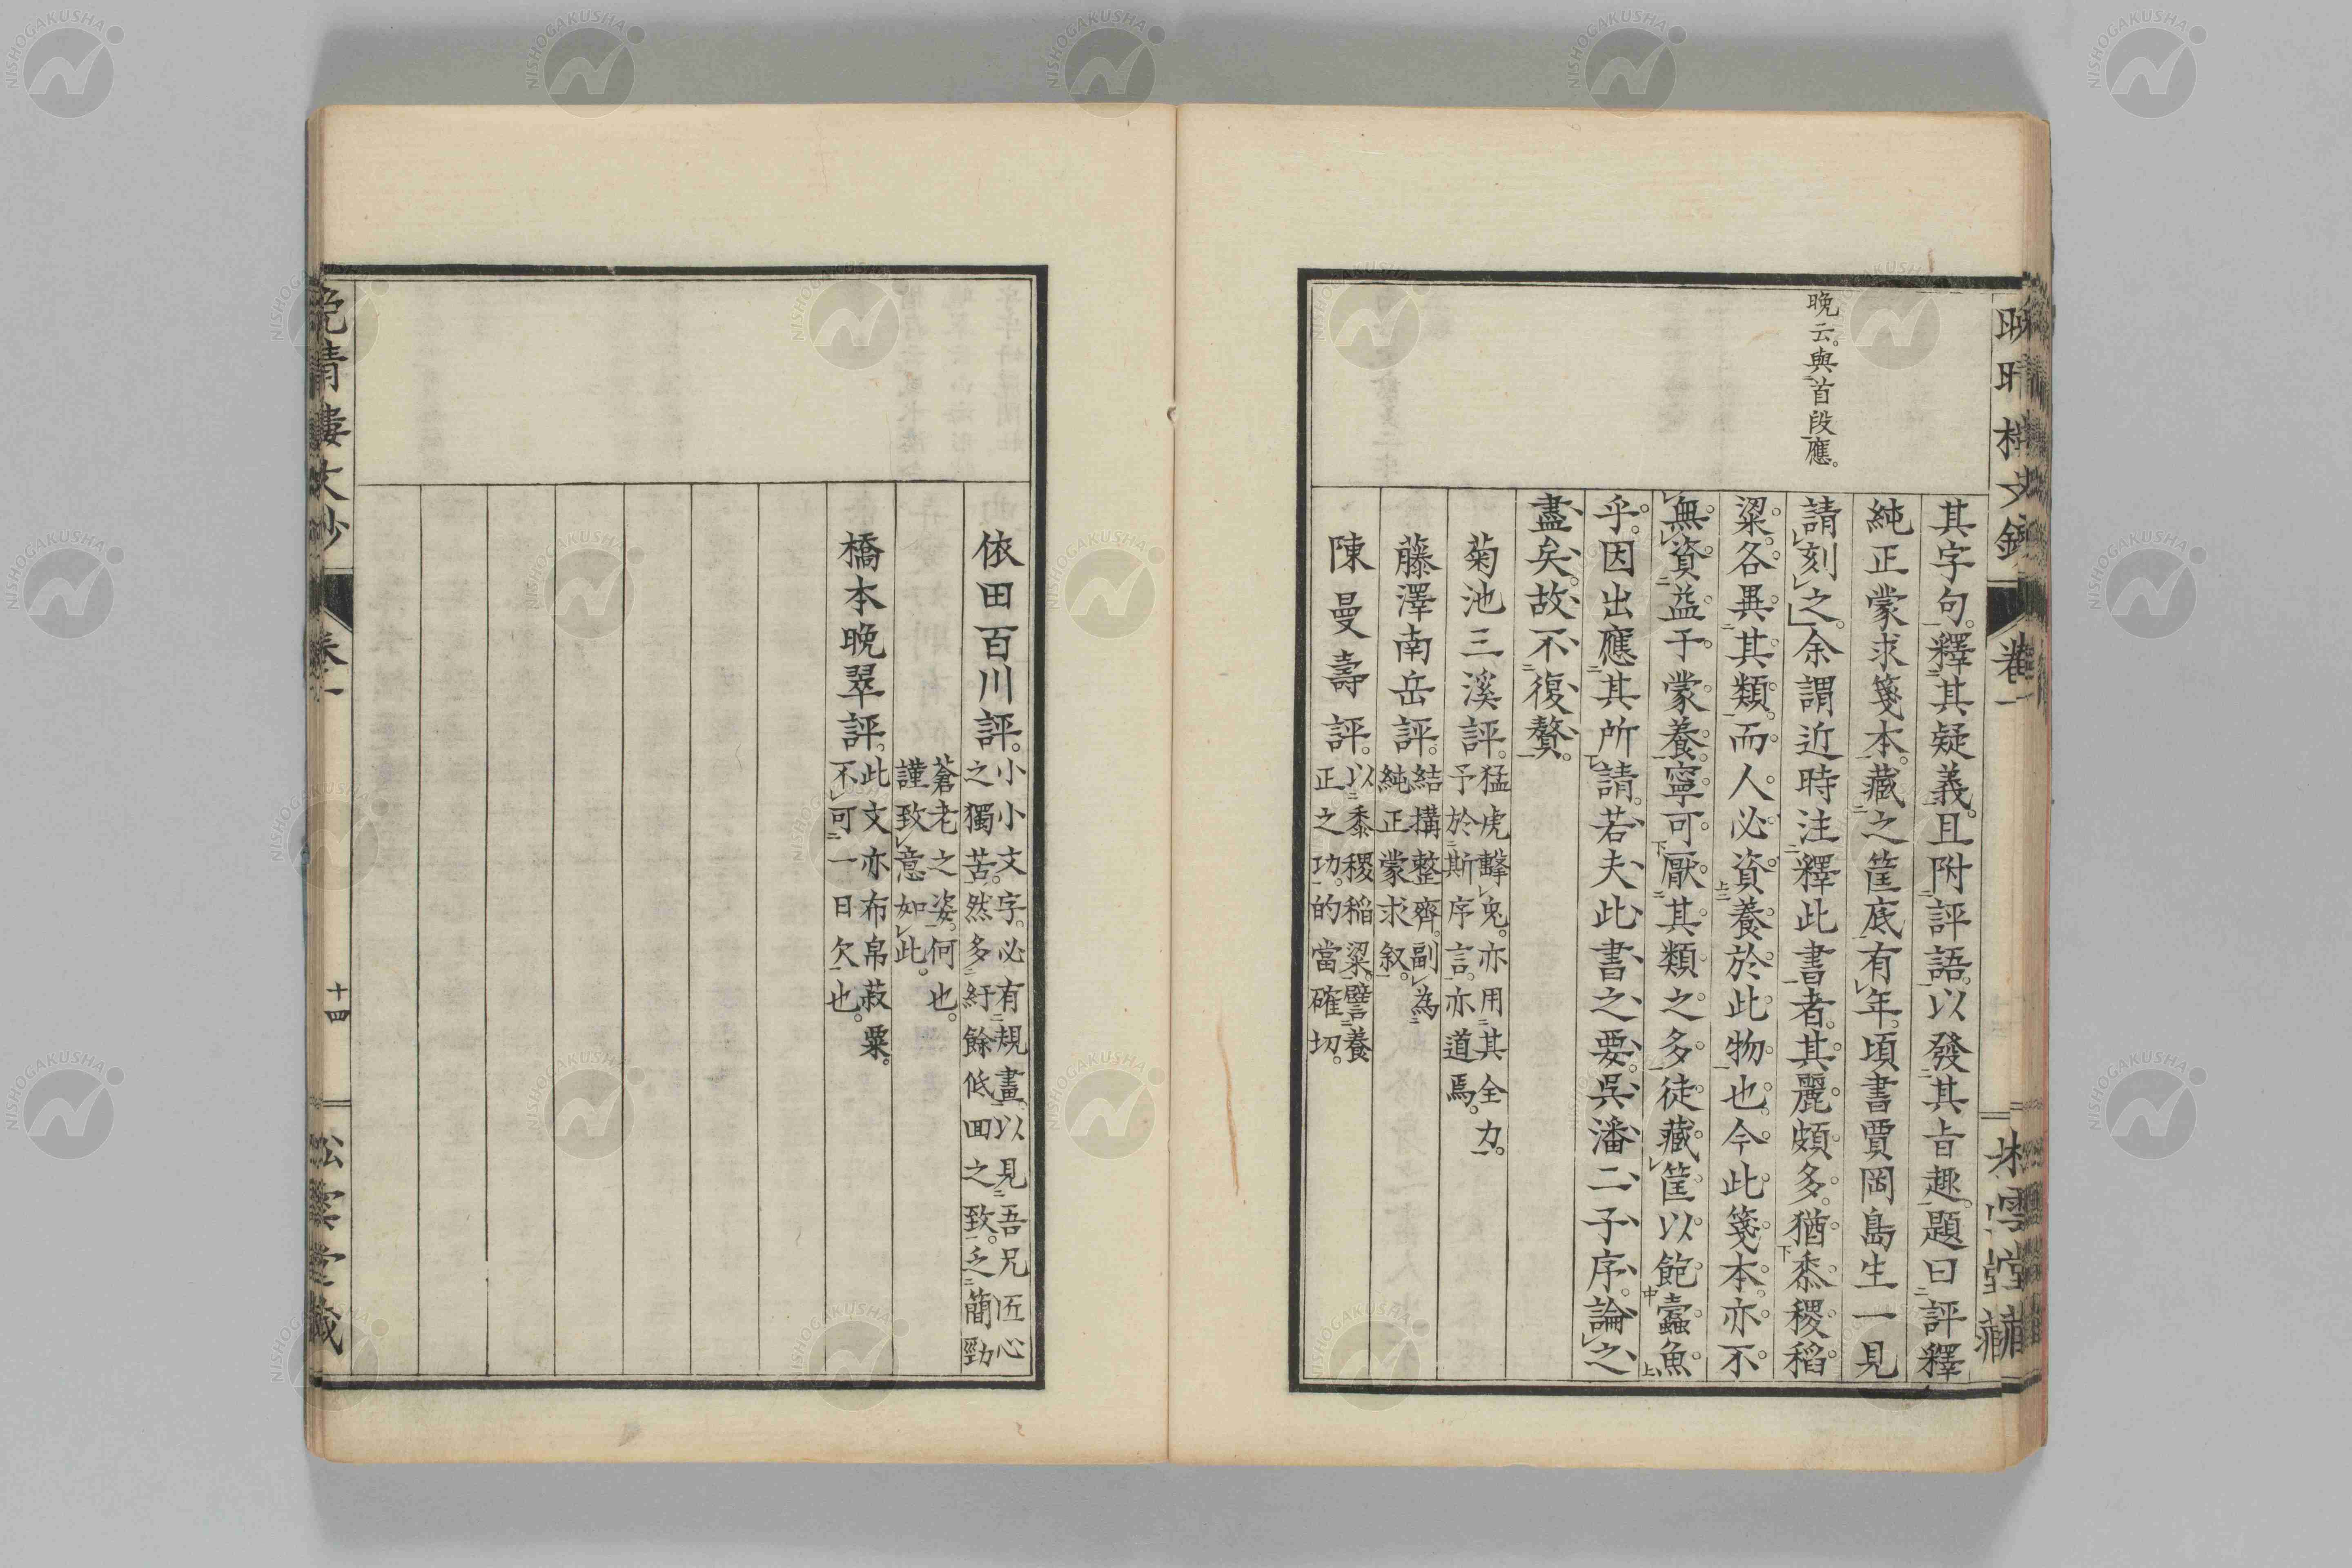 晩云。與首段應。
其字句。釋其疑義。且附評語。以發其旨趣。題曰評釋
純正蒙求箋本。藏之筐底有年。頃書賈岡島生一見
請刻之。余謂近時注釋此書者。其麗頗多。猶黍稷稻
粱。各異其類。而人必資養於此物也。今此箋本。亦不
無資益于蒙養。寧可厭其類之多。徒藏筐以飽蠹魚
乎。因出應其所請。若夫此書之要。吳潘二子序。論之
盡矣。故不復贅。
菊池三溪評。猛虎擊兎。亦用其全力。
予於斯序言。亦道焉。
藤澤南岳評。結搆整齊。副為
純正蒙求叙。
陳曼壽評。以黍稷稻粱。譬養
正之功。的當確切。
依田百川評。小小文字。必有規畫。以見吾兄匠心
之獨苦。然多紆餘低回之致。乏簡勁
蒼老之姿。何也。
謹致意如此。
橋本晩翠評。此文亦布帛菽粟。
不可一日欠也。
晩晴樓文鈔
卷一
十四
松雲堂藏
NISHOGAKUSHA